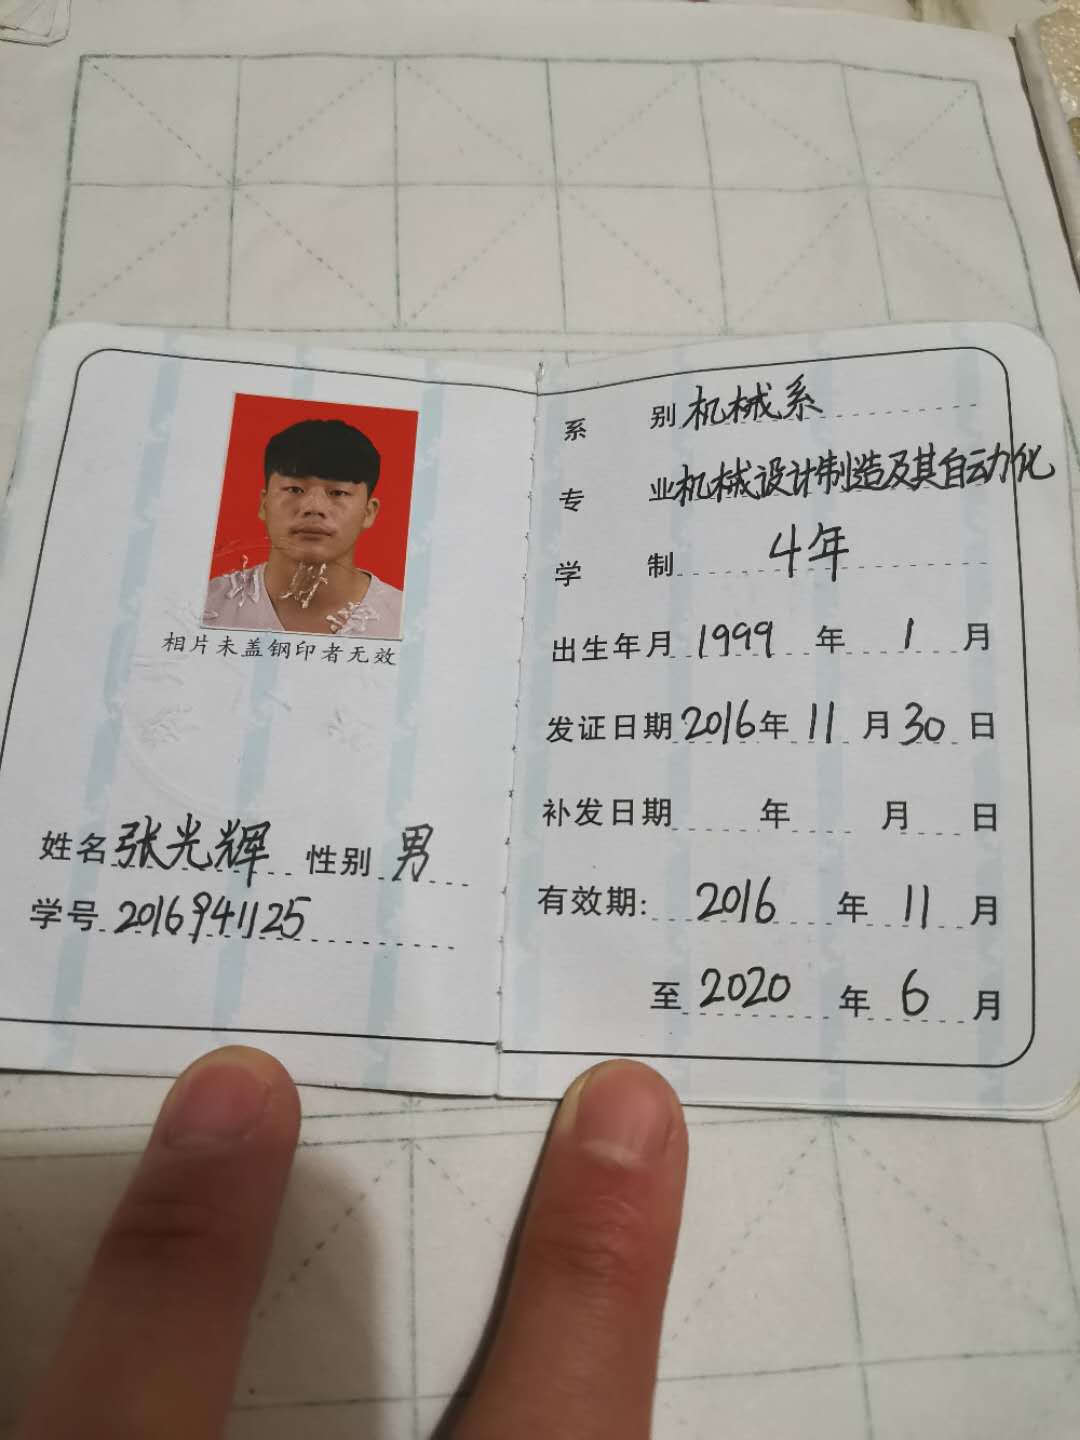 相片未盖钢印者无效
姓名 张光辉 性别 男
学号 2016941125
系别 机械系
专业 机械设计制造及其自动化
学制 4年
出生年月 1999 年 1 月
发证日期 2016 年 11 月 30 日
补发日期 年 月 日
有效期: 2016 年 11 月
至 2020 年 6 月